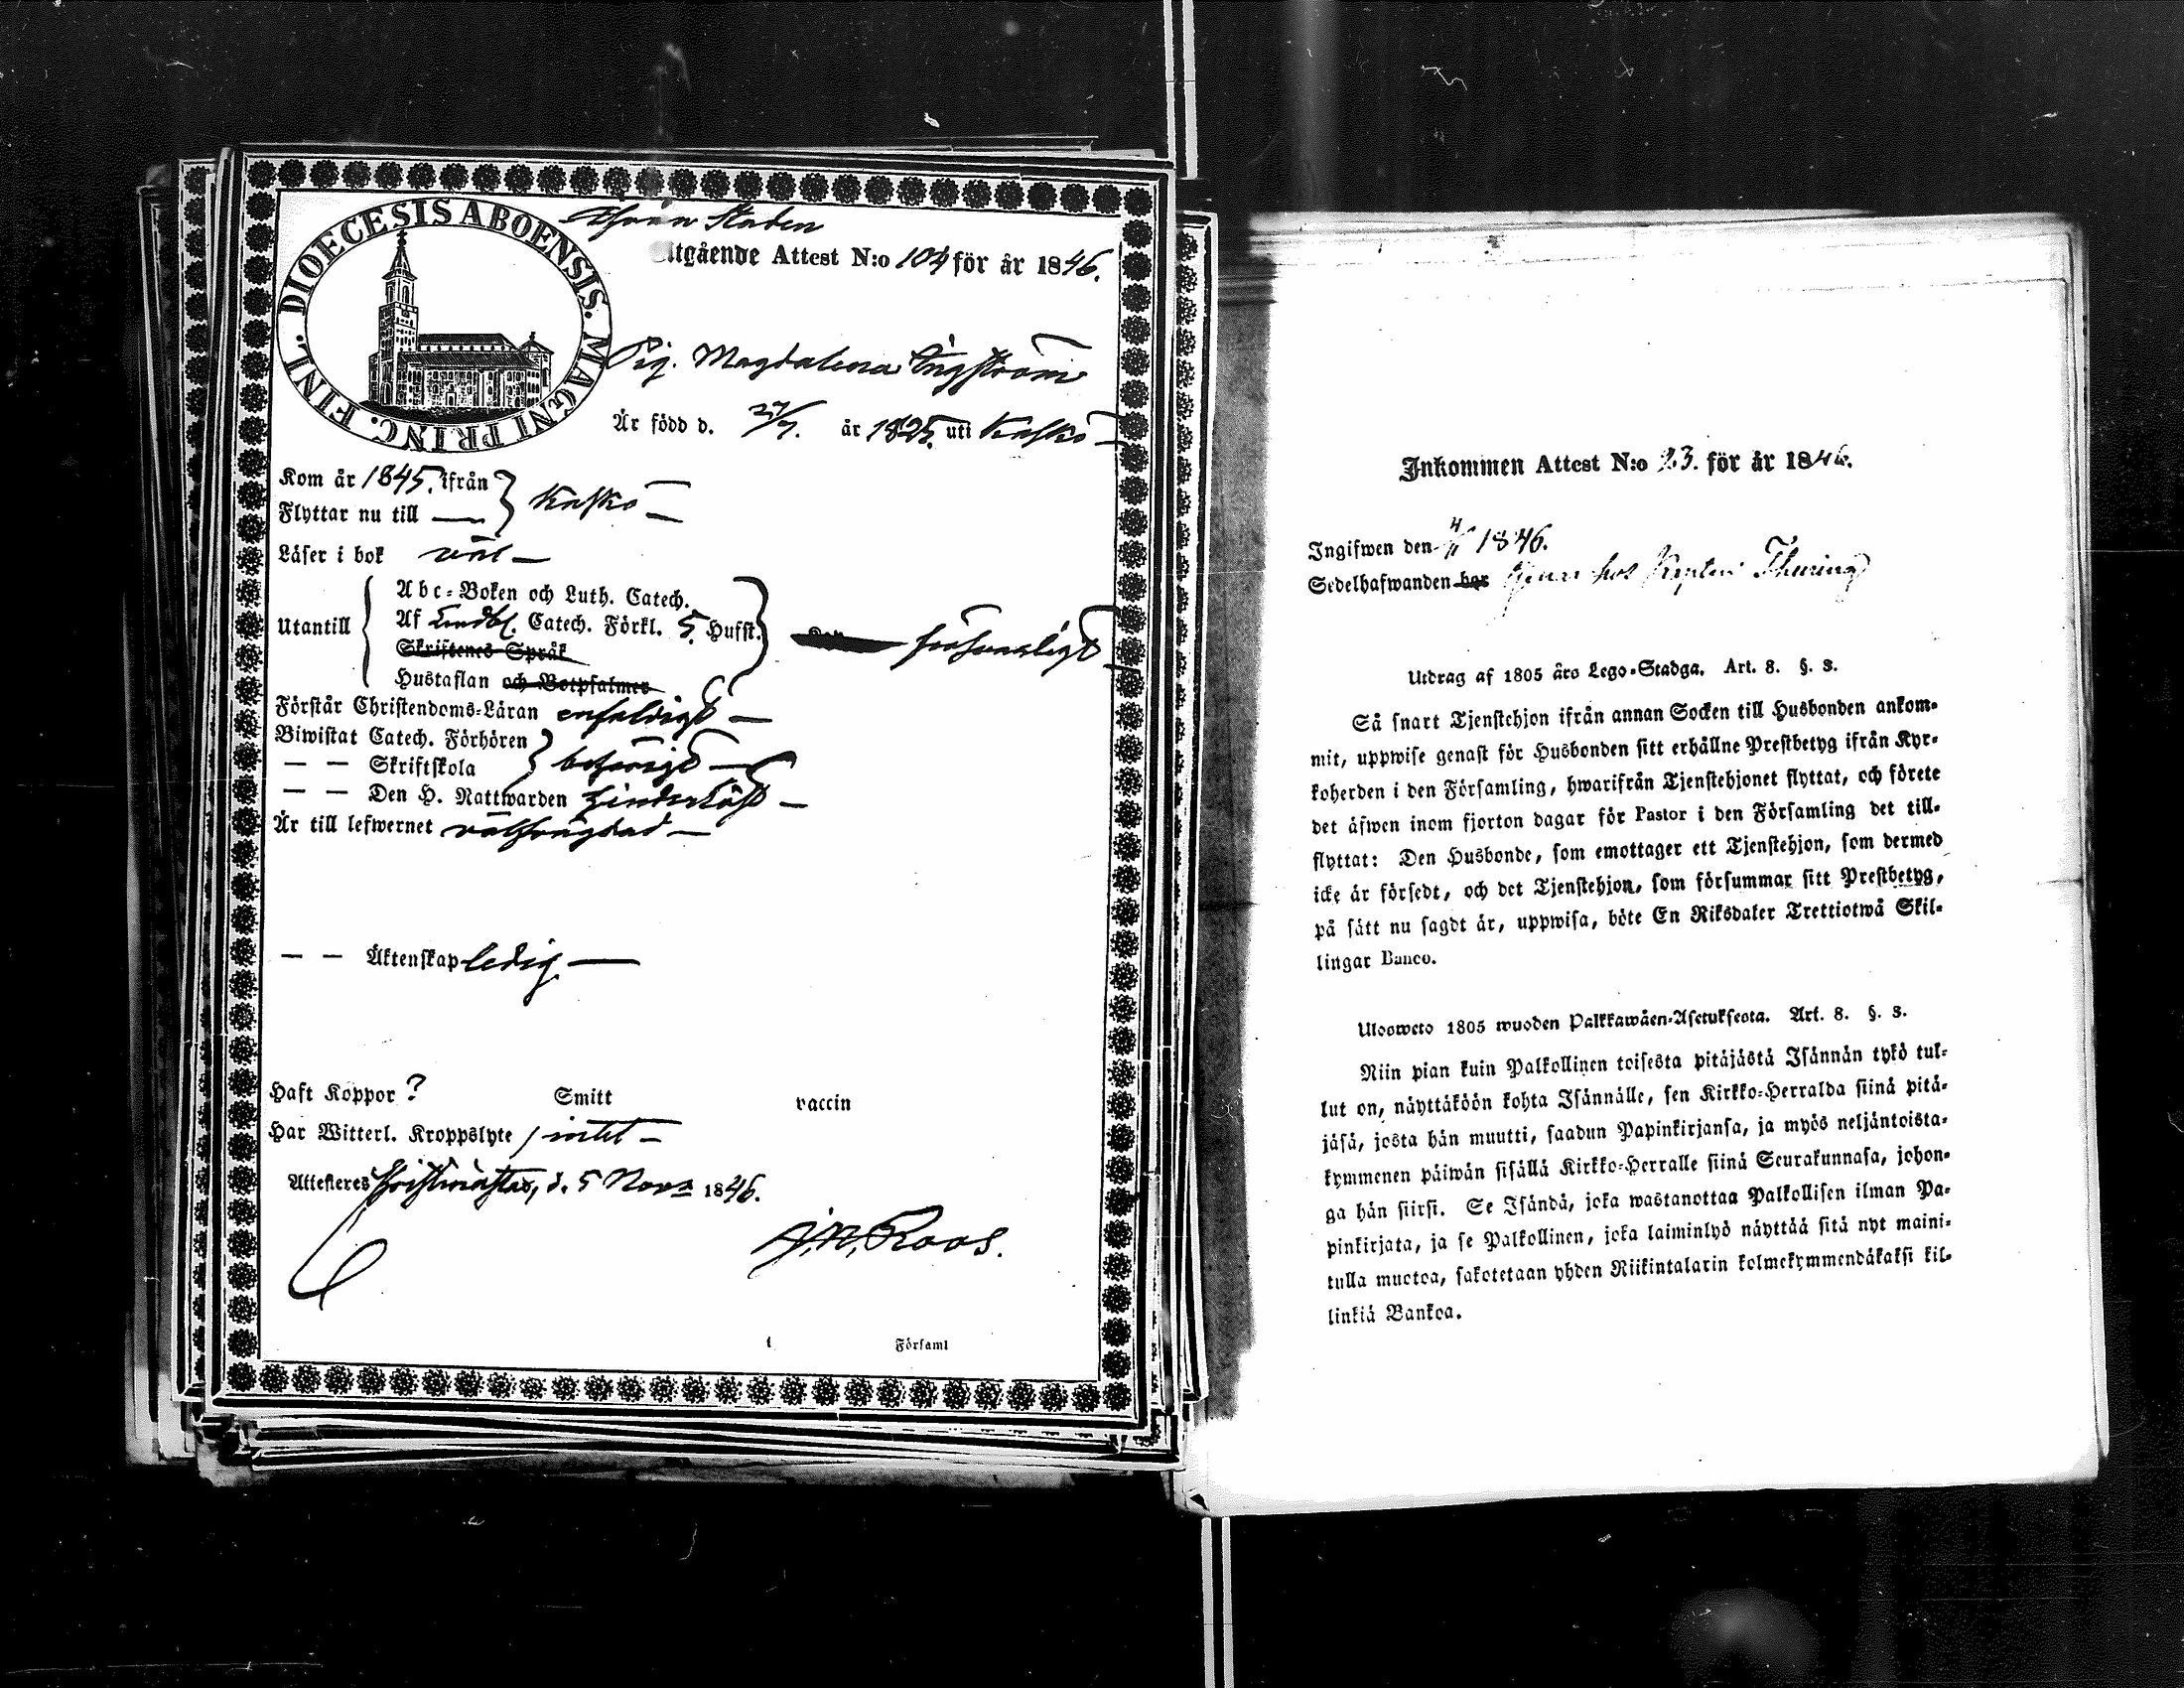 DIOECESIS ABOENSIS. MAGNI PRINC. FINL.
ifrån Staden
Utgående Attest N:o 104 för år 1846.
Pig. Magdalena Engström
Är född d. 27/7. år 1825. uti Kaskö
Kom år 1845. ifrån
Flyttar nu till — Kaskö —
Läser i bok väl —
Utantill
Abc-Boken och Luth. Catech.
Af Lindbl. Catech. Förkl. 5. Hufst. försvarligt
Skriftenes Språk
Hustaflan och Botpsalmer
Förstår Christendoms-Läran enfaldigt —
Biwistat Catech. Förhören
— — Skriftskola behörigt —
— — Den H. Nattwarden hinderlöst —
Är till lefwernet välfrägdad —
— — Äktenskap ledig —
Haft Koppor ? Smitt vaccin
Har Witterl. Kroppslyte / intet —
Attesteres Christinæstad, d. 5 Nov. 1846.
J. N. Roos.
Församl
Inkommen Attest N:o 23. för år 1846.
Ingifwen den 1846.
Sedelhafwanden har tjenar hos Kapten Thuring
Utdrag af 1805 års Lego-Stadga. Art. 8. §. 3.
Så snart Tjenstehjon ifrån annan Socken till Husbonden ankom-
mit, uppwise genast för Husbonden sitt erhållne Prestbetyg ifrån Kyr-
koherden i den Församling, hwarifrån Tjenstehjonet flyttat, och förete
det äfwen inom fjorton dagar för Pastor i den Församling det till-
flyttat: Den Husbonde, som emottager ett Tjenstehjon, som dermed
icke är försedt, och det Tjenstehjon, som försummar sitt Prestbetyg,
på sätt nu sagdt är, uppwisa, böte En Riksdaler Trettiotwå Skil-
lingar Banco.
Ulosweto 1805 wuoden Palkkawäen-Asetuksesta. Art. 8. §. 3.
Niin pian kuin Palkollinen toisesta pitäjästä Isännän tykö tul-
lut on, näyttäköön kohta Isännälle, sen Kirkko-Herralda siinä pitä-
jäsä, josta hän muutti, saadun Papinkirjansa, ja myös neljäntoista-
kymmenen päiwän sisällä Kirkko-Herralle siinä Seurakunnasa, johon-
ga hän siirsi. Se Isändä, joka wastanottaa Palkollisen ilman Pa-
pinkirjata, ja se Palkollinen, joka laiminlyö näyttää sitä nyt maini-
tulla muotoa, sakotetaan yhden Riikintalarin kolmekymmendäkaksi kil-
linkiä Bankoa.